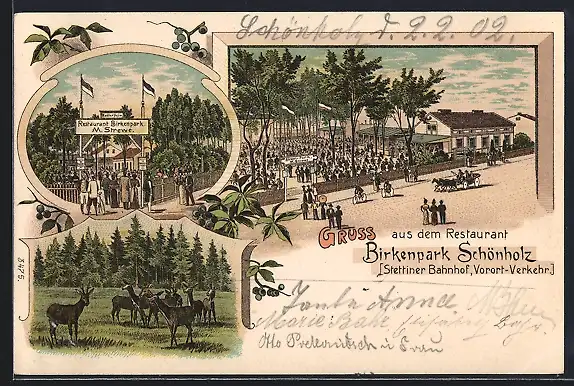 Schönholz d. 2.2.02.
Restaurant Birkenpark
M. Strewe.
GRUSS aus dem Restaurant
Birkenpark Schönholz
[Stettiner Bahnhof, Vorort-Verkehr.]
Tante Anna
Marie
Otto u Frau
3475